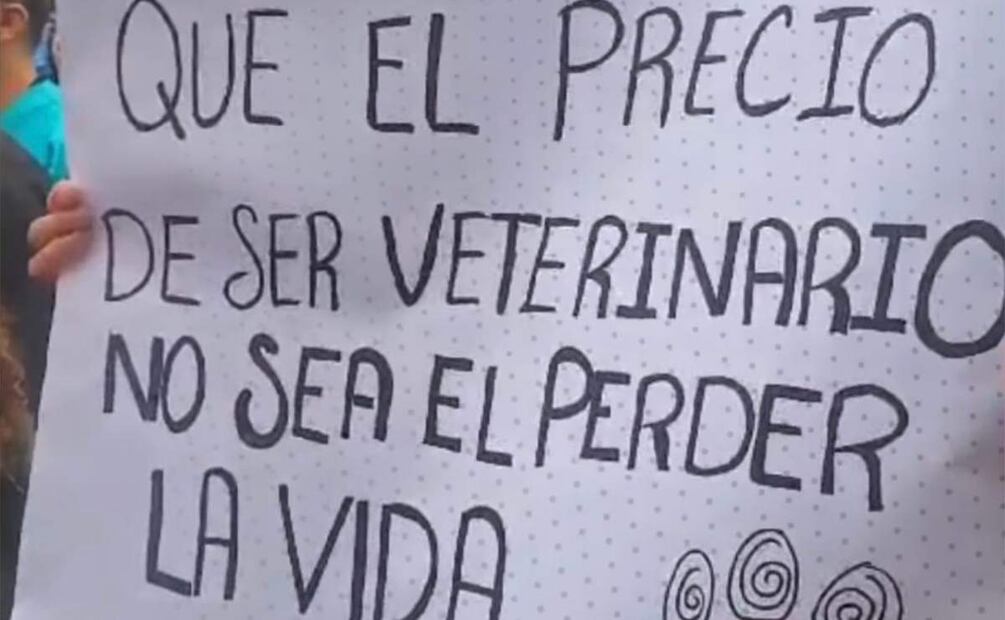 QUE EL PRECIO
DE SER VETERINARIO
NO SEA EL PERDER
LA VIDA